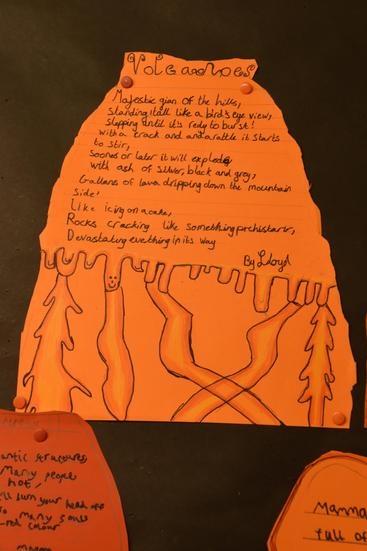 Volcanoes
Majestic gian of the hills,
standing tall like a bird's eye view,
slepping until it's redy to burst!
with a crack and anarattle it starts
to stir,
Soones or later it will explode,
with ash of silver, black and grey,
Gallons of lava dripping down the mountain
side!
Like icing on a cake,
Rocks cracking like something prehistaric,
Devastating evething in its way
By Lloyd
antic structures
Many people
hot,
burn your head off
Many souls
red colour
Mamma
full of